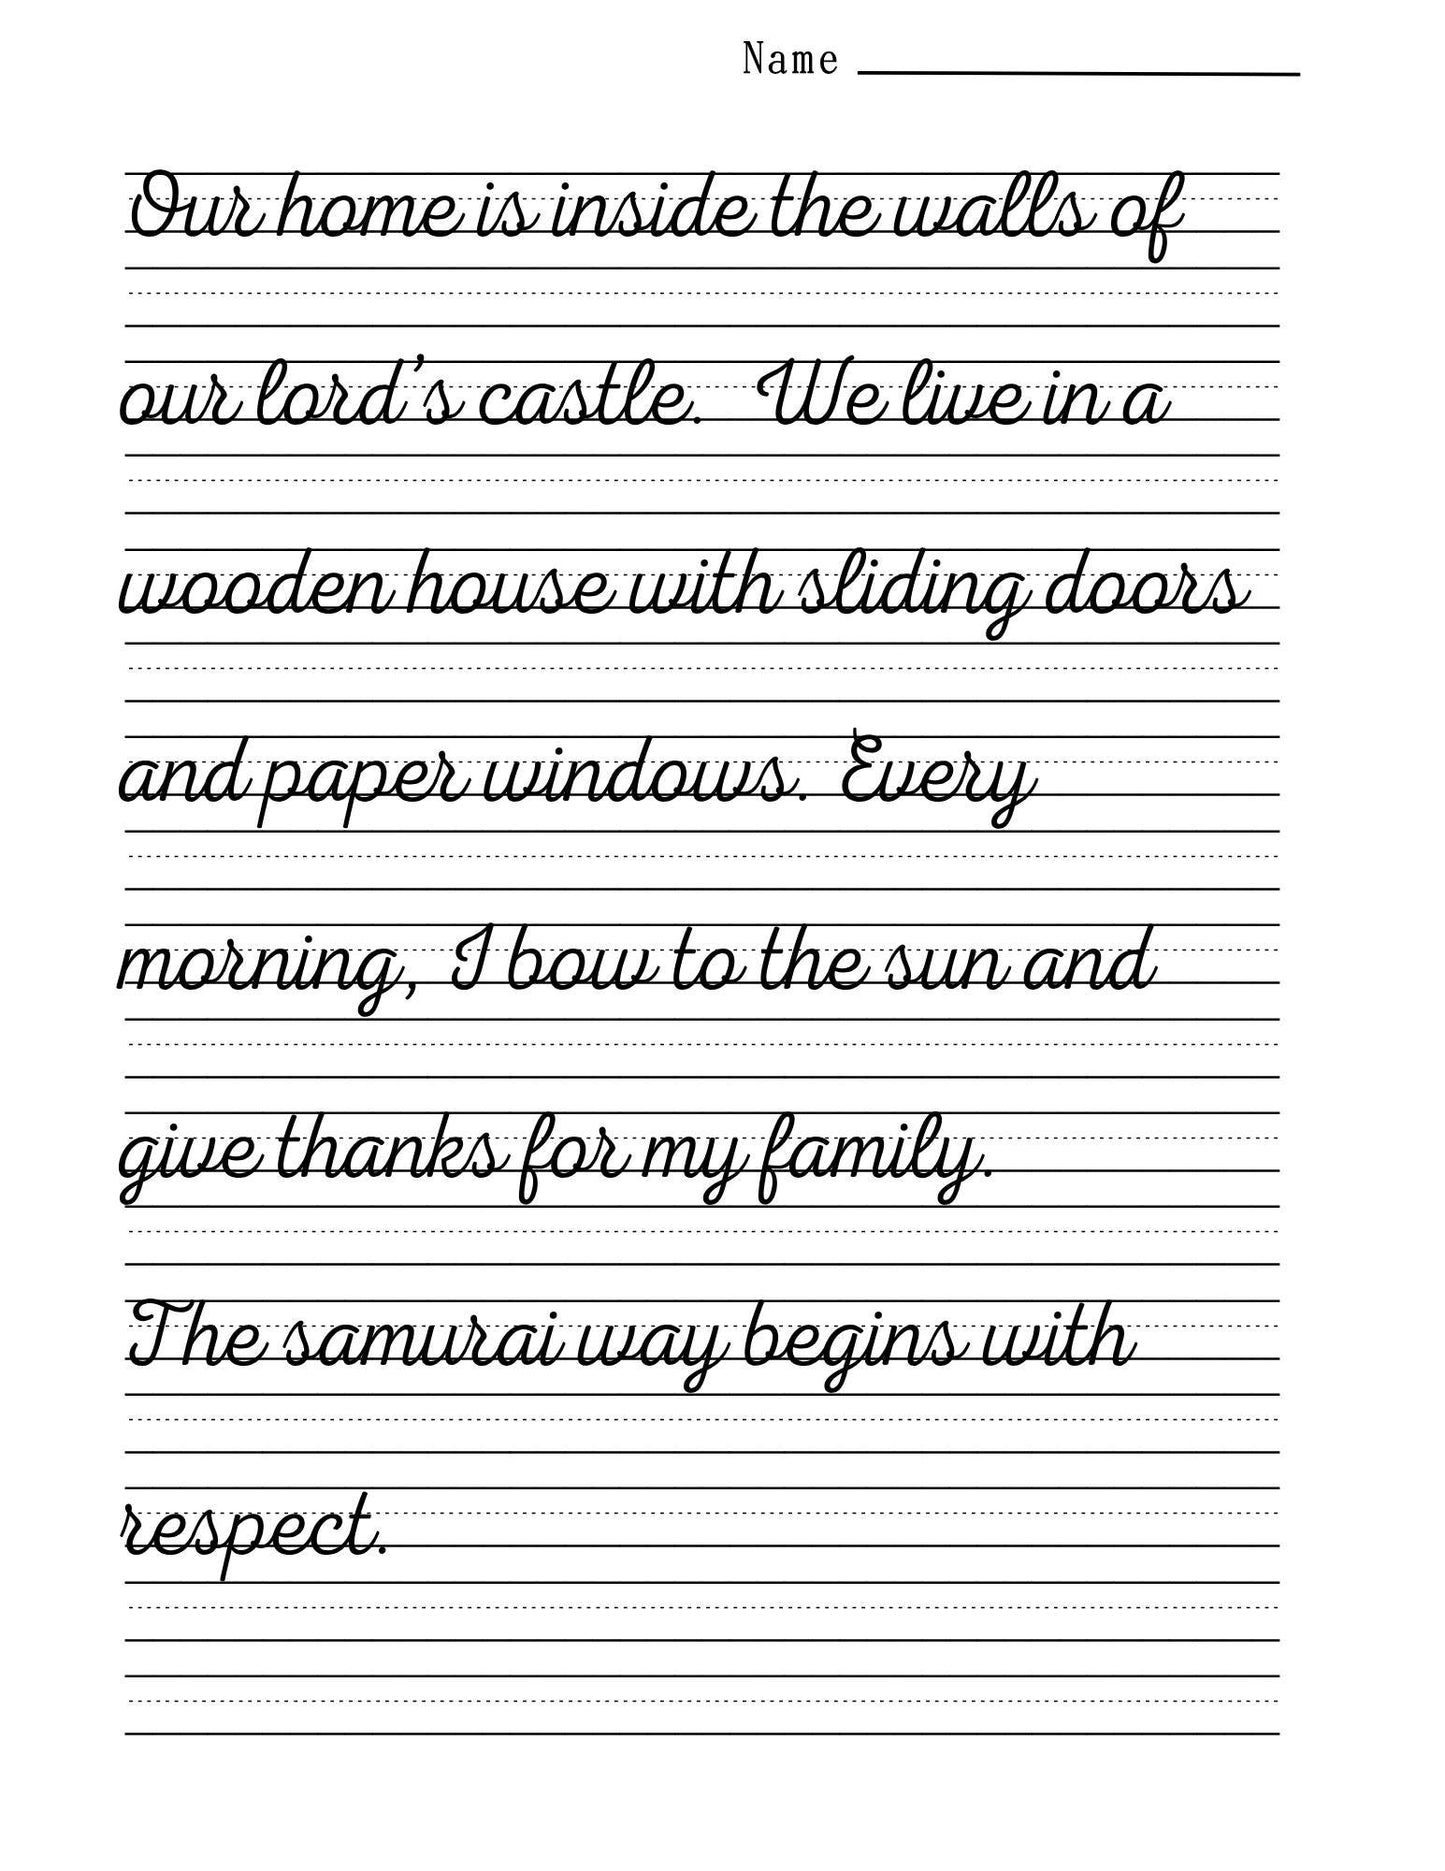 Name
Our home is inside the walls of
our lord’s castle. We live in a
wooden house with sliding doors
and paper windows. Every
morning, I bow to the sun and
give thanks for my family.
The samurai way begins with
respect.